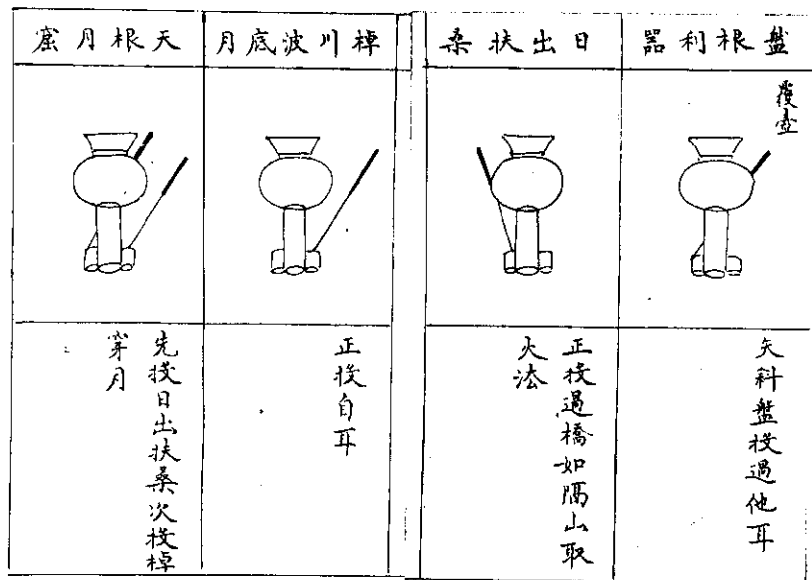 盤根利器
覆壺
矢斜盤投過他耳
日出扶桑
正投過橋如隔山取
火法
棹川波底月
正投自耳
天根月窟
先投日出扶桑次投棹
穿月